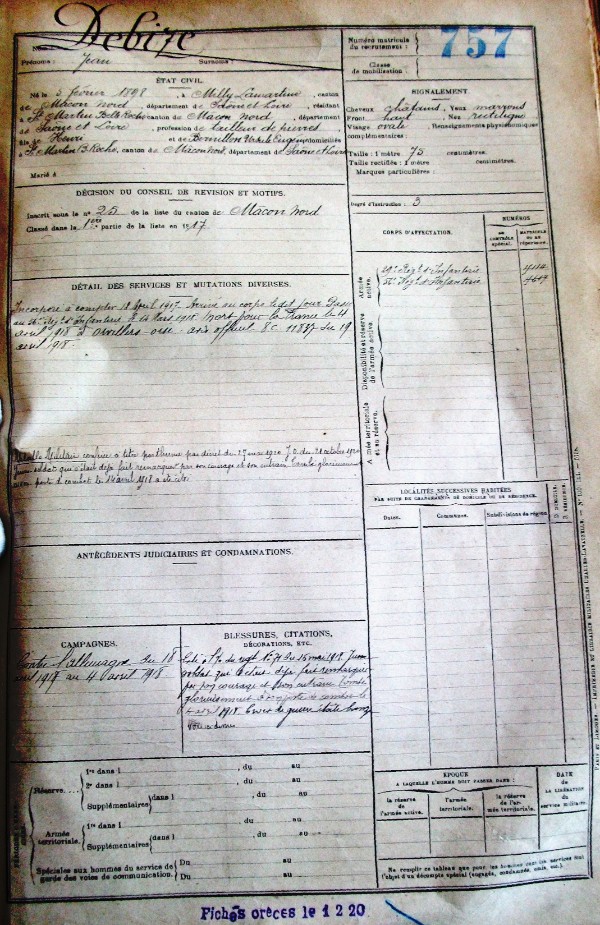 Nom : Debize
Prénoms : Jean Surnoms :
Numéro matricule
du recrutement :
757
Classe
de mobilisation :
ÉTAT CIVIL.
Né le 5 février 1898, à Milly Lamartine, canton
de Mâcon Nord, département de Saône et Loire, résidant
à St Martin Belle Roche canton de Mâcon Nord, département
de Saône et Loire, profession de tailleur de pierres
fils de Henri et de domiciliés
à St Martin B. Roche, canton de Mâcon Nord, département de Saône et Loire
Marié à
SIGNALEMENT.
Cheveux châtains, Yeux marrons
Front haut, Nez rectiligne
Visage ovale, Renseignements physionomiques
complémentaires :
Taille : 1 mètre 75 centimètres.
Taille rectifiée : 1 mètre centimètres.
Marques particulières :
Degré d'instruction : 3
DÉCISION DU CONSEIL DE REVISION ET MOTIFS.
Inscrit sous le n° 25 de la liste du canton de Mâcon Nord
Classé dans la 1ère partie de la liste en 1917.
CORPS D'AFFECTATION.
NUMÉROS
AU
CONTRÔLE
spécial.
MATRICULE
OU AU
répertoire.
Armée
active.
Regt d'Infanterie
56e Regt d'Infanterie
Disponibilité et réserve
de l'armée active.
Armée territoriale
et sa réserve.
DÉTAIL DES SERVICES ET MUTATIONS DIVERSES.
Incorporé à compter 18 Avril 1917. Arrivé au corps le dit jour Passé
au 56e Regt d'Infanterie le 14 Mars 1918. Mort pour la France le 4
avril 1918 à orvillers oise avis officiel 8C 11837 du 19
avril 1918.
Médaille Militaire conférée à titre posthume par décret du 27 mai 1920 J.O. du 21 octobre 1920
jeune soldat qui s'était déjà fait remarquer par son courage et son entrain tombé glorieusement
à son poste de combat le 4 avril 1918 a été cité
LOCALITÉS SUCCESSIVES HABITÉES
PAR SUITE DE CHANGEMENTS DE DOMICILE OU DE RÉSIDENCE.
Dates.
Communes.
Subdivisions de région
D. DOMICILE.
R. RÉSIDENCE.
ANTÉCÉDENTS JUDICIAIRES ET CONDAMNATIONS.
CAMPAGNES.
Contre l'allemagne du 18
avril 1917 au 4 avril 1918
BLESSURES, CITATIONS,
DÉCORATIONS, ETC.
Cité à l'o. du regt n° 71 du 15 mai 1918 Jeune
soldat qui s'était déjà fait remarquer
par son courage et son entrain tombé
glorieusement à son poste de combat le
4 avril 1918. Croix de guerre étoile bronze
Réserve....
1re dans l , du au
2e dans l , du au
Supplémentaires dans l , du au
Armée
territoriale.
1re dans l , du au
Supplémentaires dans l , du au
Spéciales aux hommes du service de
garde des voies de communication.
Du au
Du au
ÉPOQUE
A LAQUELLE L'HOMME DOIT PASSER DANS :
la réserve
de l'armée active.
l'armée
territoriale.
la réserve
de l'ar-
mée territoriale.
DATE
de
LA LIBÉRATION
du
service militaire.
Ne remplir ce tableau que pour les hommes dont les services font
l'objet d'un décompte spécial (engagés, condamnés, omis, etc.).
Fiches créées le 1 2 20